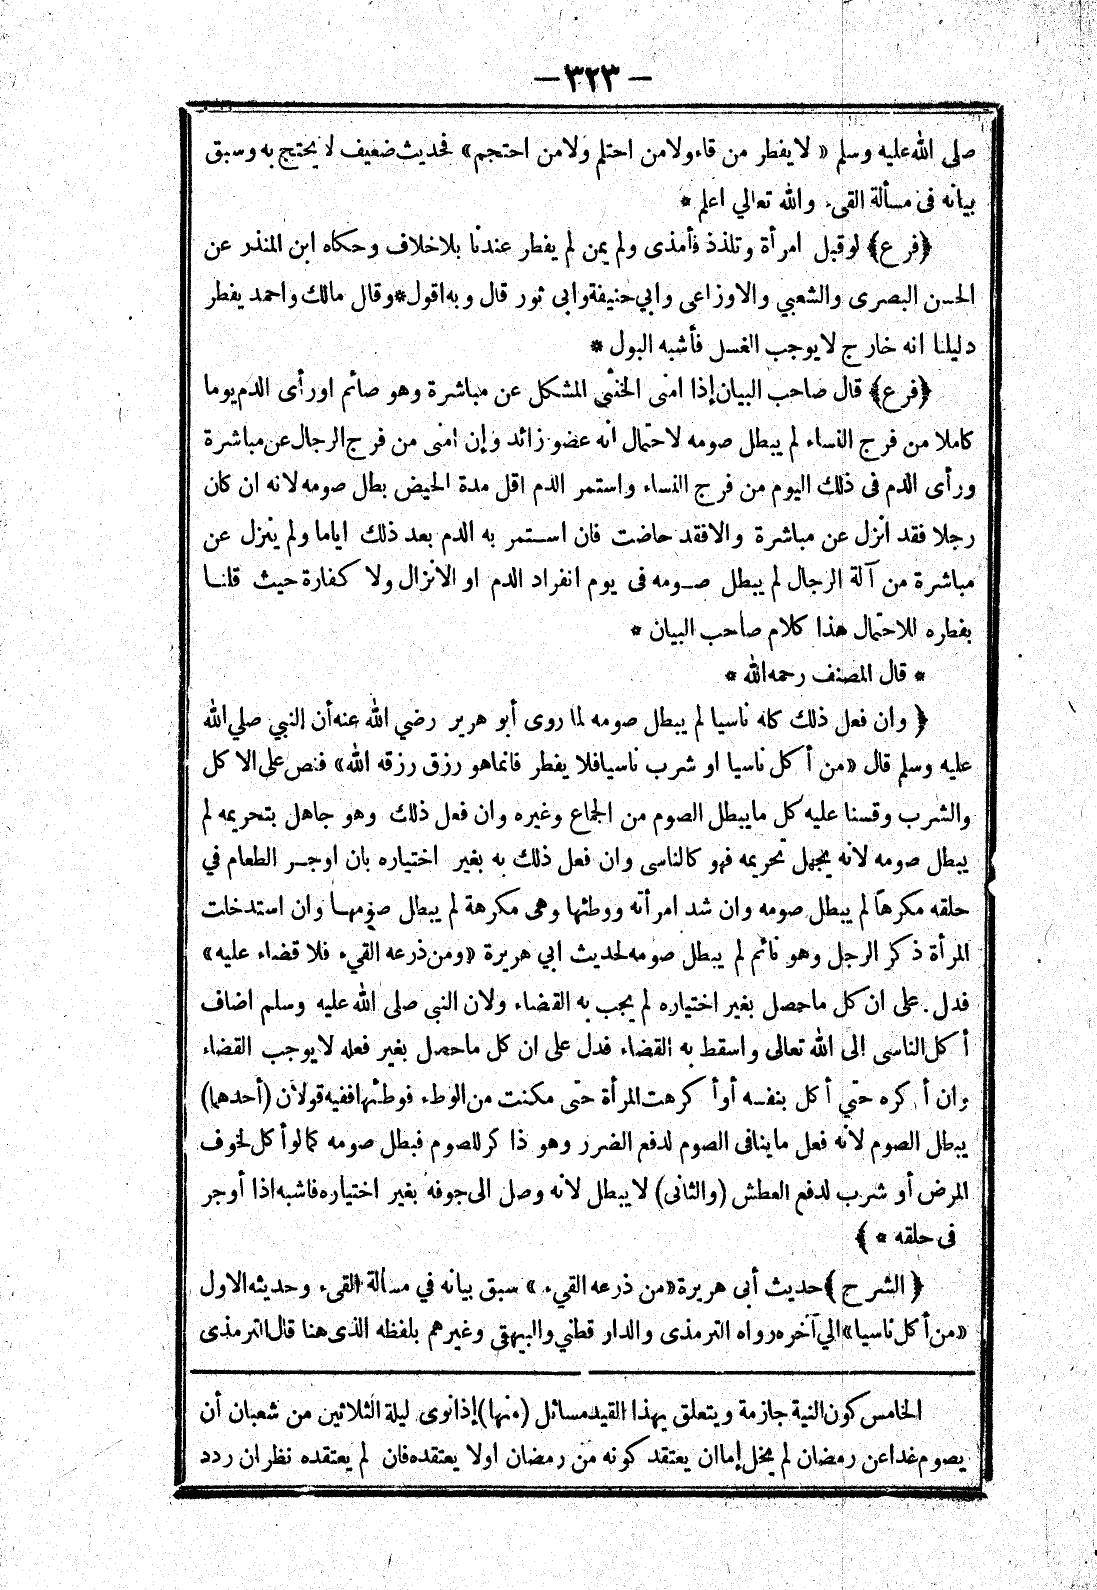 — ٣٢٣ —
صلى الله عليه وسلم « لا يفطر من قاء ولا من احتلم ولا من احتجم » فحديث ضعيف لا يحتج به وسبق
بيانه فى مسألة القىء والله تعالي اعلم *
﴿ فرع ﴾ لو قبل امرأة وتلذذ فأمذى ولم يمن لم يفطر عندنا بلا خلاف وحكاه ابن المنذر عن
الحسن البصرى والشعبي والاوزاعى وابي حنيفة وابى ثور قال وبه اقول * وقال مالك واحمد يفطر
دليلنا انه خارج لا يوجب الغسل فأشبه البول *
﴿ فرع ﴾ قال صاحب البيان إذا امنى الخنثى المشكل عن مباشرة وهو صائم او رأى الدم يوما
كاملا من فرج النساء لم يبطل صومه لاحتمال انه عضو زائد وإن امنى من فرج الرجال عن مباشرة
ورأى الدم فى ذلك اليوم من فرج النساء واستمر الدم اقل مدة الحيض بطل صومه لانه ان كان
رجلا فقد انزل عن مباشرة والا فقد حاضت فان استمر به الدم بعد ذلك اياما ولم ينزل عن
مباشرة من آلة الرجال لم يبطل صومه فى يوم انفراد الدم او الانزال ولا كفارة حيث قلنا
بفطره للاحتمال هذا كلام صاحب البيان *
* قال المصنف رحمه الله *
﴿ وان فعل ذلك كله ناسيا لم يبطل صومه لما روى أبو هرير رضي الله عنه أن النبي صلي الله
عليه وسلم قال « من أكل ناسيا او شرب ناسيا فلا يفطر فانما هو رزق رزقه الله » فنص على الاكل
والشرب وقسنا عليه كل ما يبطل الصوم من الجماع وغيره وان فعل ذلك وهو جاهل بتحريمه لم
يبطل صومه لانه يجهل تحريمه فهو كالناسى وان فعل ذلك به بغير اختياره بان اوجر الطعام في
حلقه مكرها لم يبطل صومه وان شد امرأته ووطئها وهى مكرهة لم يبطل صومها وان استدخلت
المرأة ذكر الرجل وهو نائم لم يبطل صومه لحديث ابي هريرة « ومن ذرعه القيء فلا قضاء عليه »
فدل على ان كل ما حصل بغير اختياره لم يجب به القضاء ولان النبي صلى الله عليه وسلم اضاف
أكل الناسى الى الله تعالى واسقط به القضاء فدل على ان كل ما حصل بغير فعله لا يوجب القضاء
وان أكره حتي أكل بنفسه أو أكرهت المرأة حتى مكنت من الوطء فوطئها ففيه قولان (أحدهما)
يبطل الصوم لانه فعل ما ينافى الصوم لدفع الضرر وهو ذاكر للصوم فبطل صومه كما لو أكل لخوف
المرض أو شرب لدفع العطش (والثانى) لا يبطل لانه وصل الى جوفه بغير اختياره فاشبه اذا أوجر
فى حلقه * ﴾
﴿ الشرح ﴾ حديث أبى هريرة « من ذرعه القيء » سبق بيانه في مسألة القىء وحديثه الاول
« من أكل ناسيا » الي آخره رواه الترمذى والدار قطني والبيهقى وغيرهم بلفظه الذى هنا قال الترمذى
الخامس كون النية جازمة ويتعلق بهذا القيد مسائل (منها) إذا نوى ليلة الثلاثين من شعبان أن
يصوم غدا عن رمضان لم يخل إما ان يعتقد كونه من رمضان اولا يعتقده فان لم يعتقده نظر ان ردد